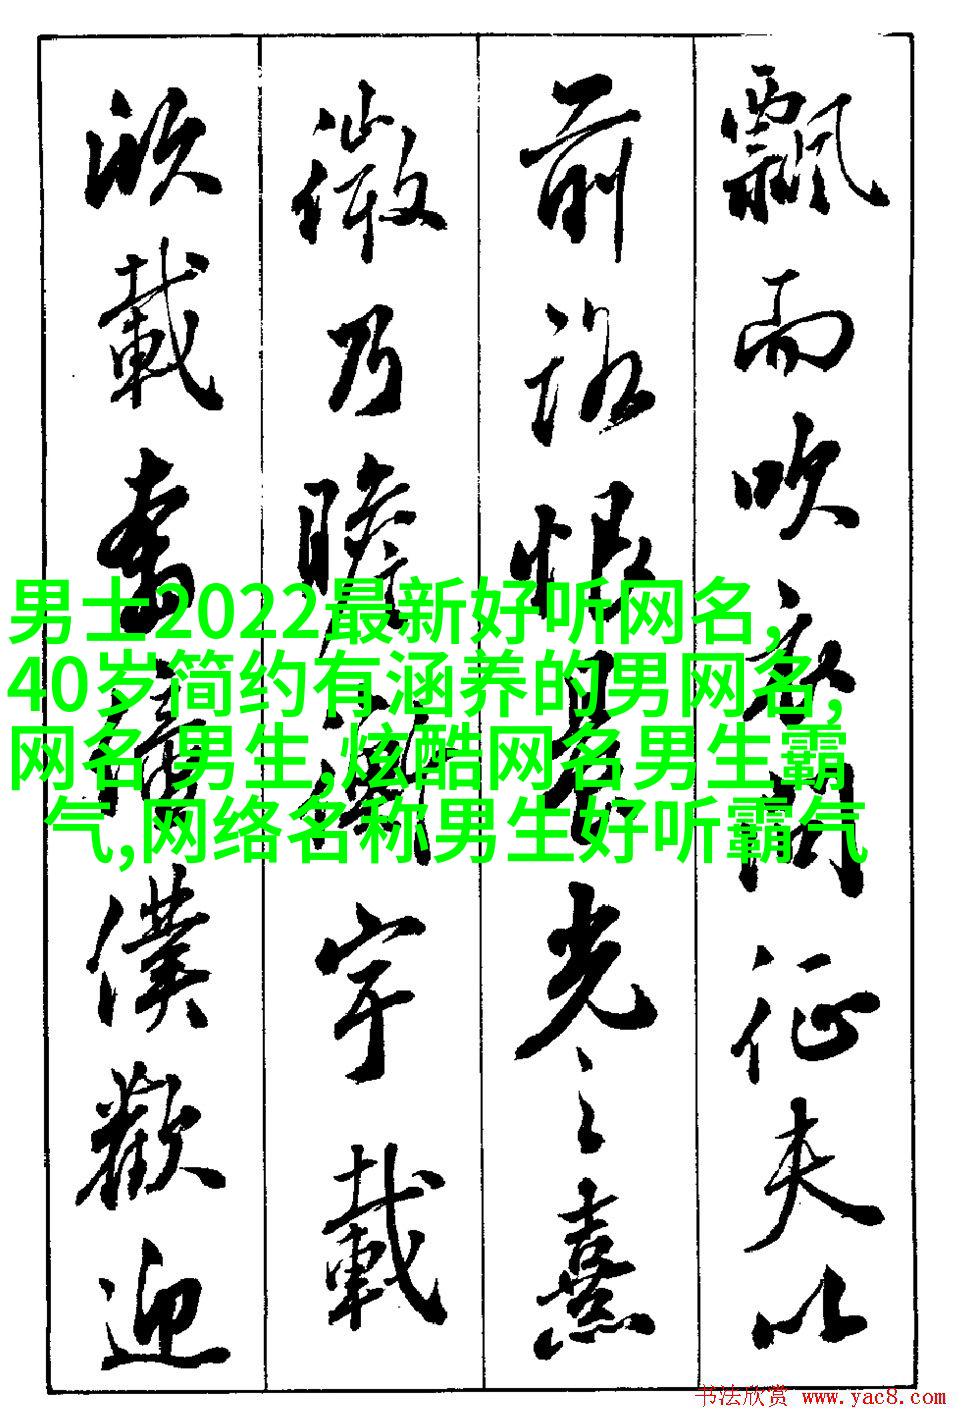 飄而吹衣問征夫以
前路恨晨光之熹
微乃瞻衡宇載
欣載奔僮僕歡迎
男士2022最新好听网名,
40岁简约有涵养的男网名,
网名 男生,炫酷网名男生霸
气,网络名称男生好听霸气
书法欣赏 www.yac8.com